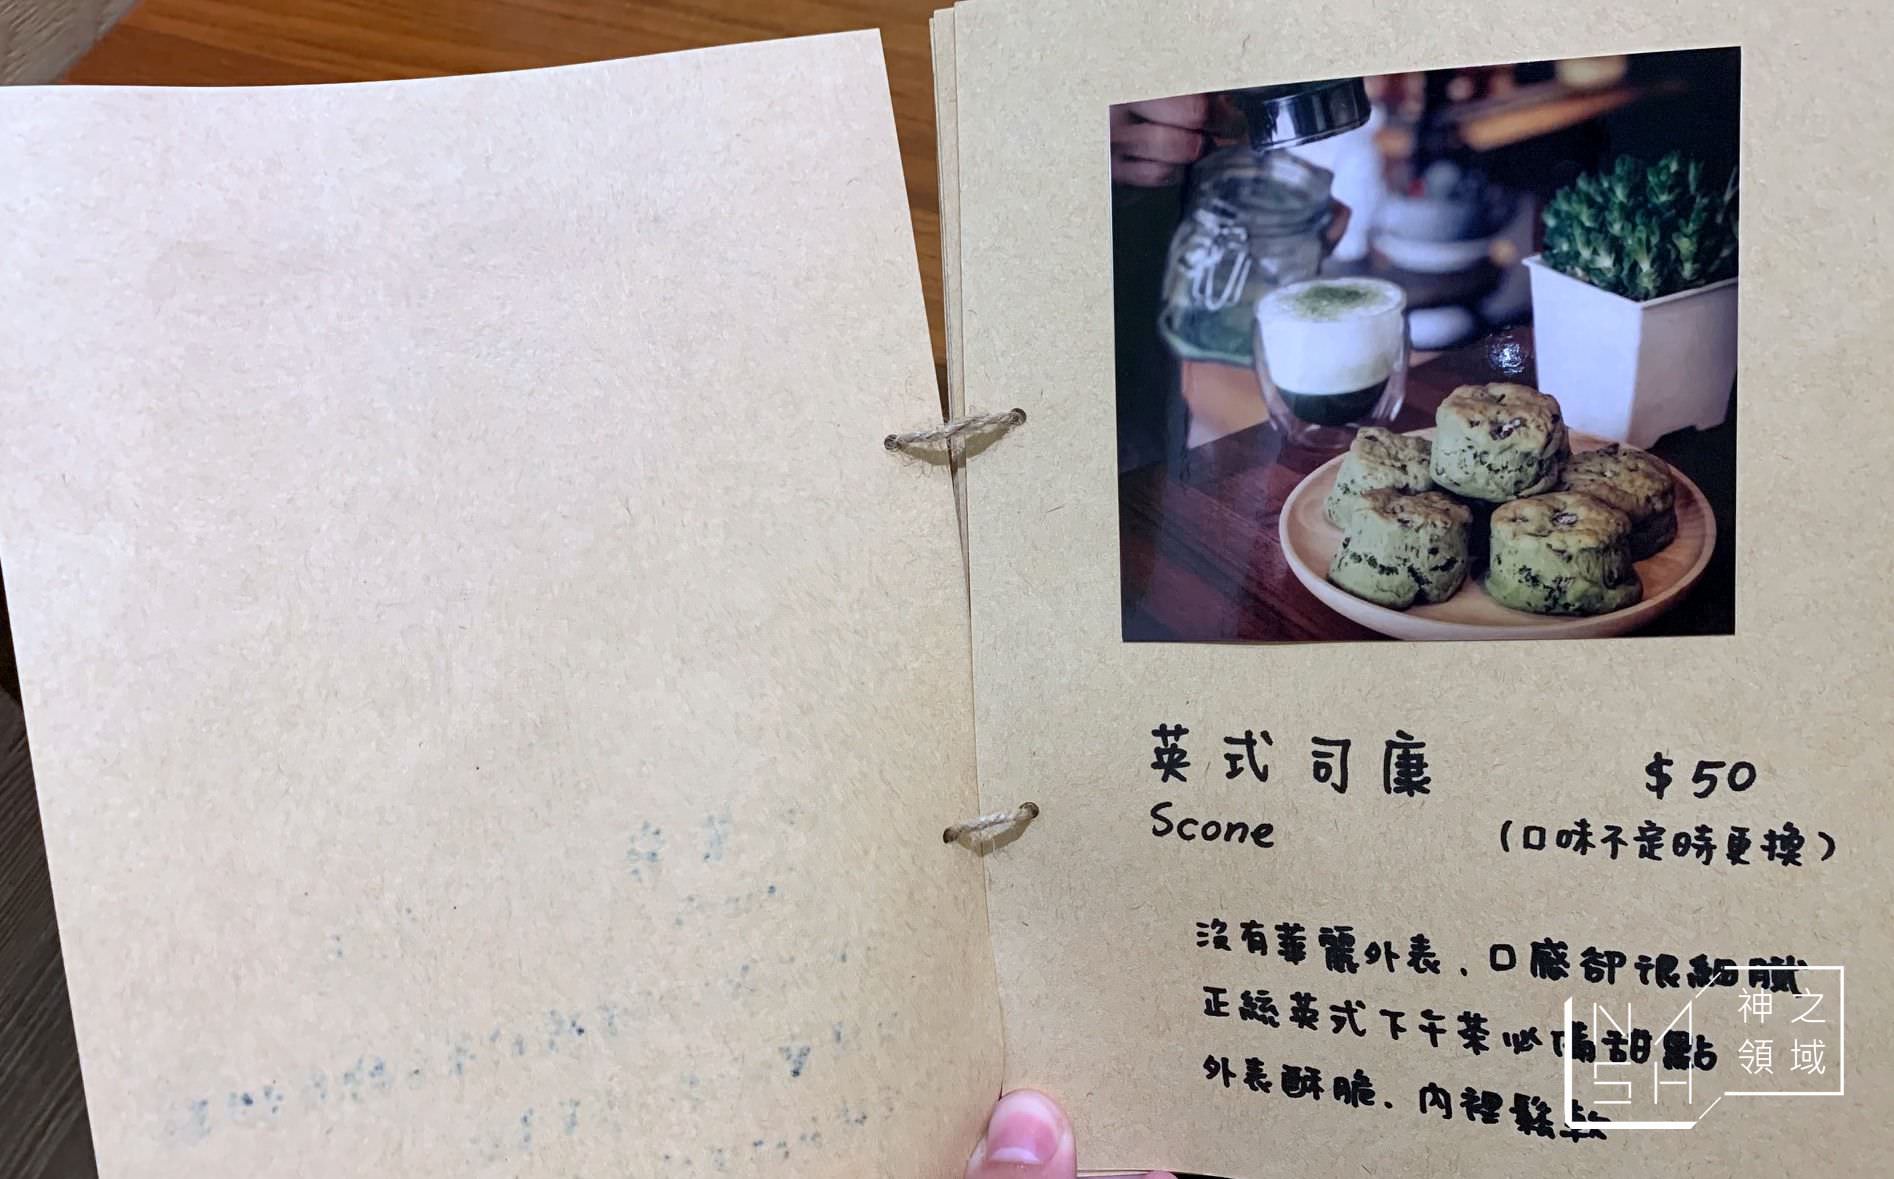 英式司康 $50
Scone (口味不定時更換)
沒有華麗外表、口感卻很細膩
正統英式下午茶必備甜點
外表酥脆、內裡鬆軟
NASH
神之
領域